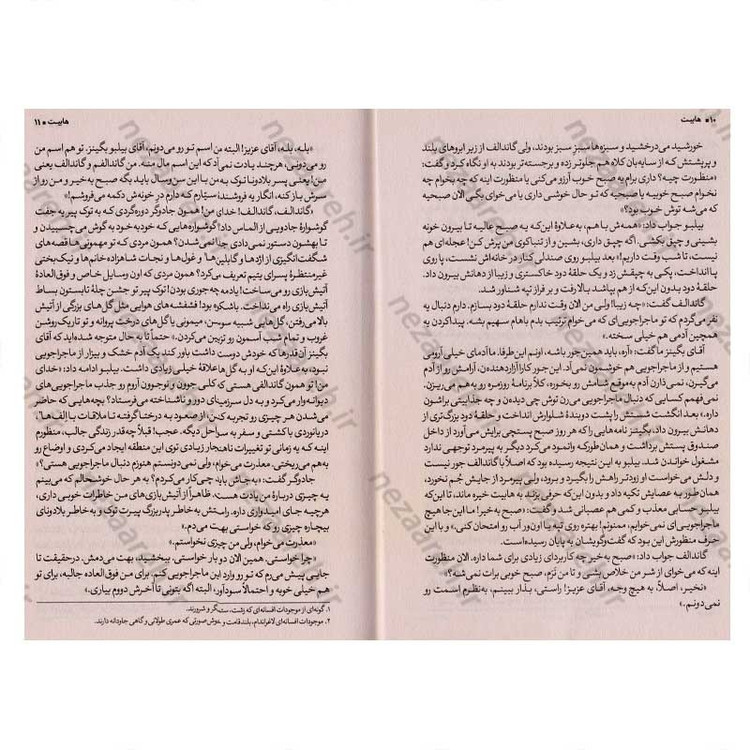 ۱۰ ■ هابیت
خورشید می‌درخشید و سبزه‌ها سبز سبز بودند، ولی گاندالف از زیر ابروهای بلند
و پرپشتش که از سایه‌بان کلاه هم جلوتر زده و برجسته‌تر بودند به او نگاه کرد و گفت:
«منظورت چیه؟ داری برام یه صبح خوب آرزو می‌کنی یا منظورت اینه که بخوام چه
نخوام صبح خوبیه یا صبحیه که تو حال خوشی داری یا می‌خوای بگی الان صبحیه
که می‌شه توش خوب بود؟»
بیلبو جواب داد: «همه‌ش با هم، به‌علاوهٔ این‌که یه صبح عالیه تا بیرون خونه
بشینی و چپق بکشی. اگه چپق داری، بشین و از تنباکوی من پرش کن! عجله‌ای هم
نیست، تا شب وقت داریم!» بعد بیلبو روی صندلی کنار در خانه‌اش نشست، پا روی
پا انداخت، پکی به چپقش زد و یک حلقهٔ دود خاکستری و زیبا از دهانش بیرون داد.
حلقهٔ دود بدون این‌که از هم بپاشد بالا رفت و بر فراز تپه شناور شد.
گاندالف گفت: «چه زیبا! ولی من الان وقت ندارم حلقهٔ دود بسازم. دارم دنبال یه
نفر می‌گردم که تو ماجراجویی‌ای که می‌خوام ترتیب بدم باهام سهیم بشه. پیدا کردن یه
همچین آدمی هم خیلی سخته.»
آقای بگینز ما گفت: «آره، باید همین‌جور باشه، اونم این‌طرفا. ما آدمای خیلی آرومی
هستیم و از ماجراجویی هم خوشمون نمی‌آد. این‌جور کارا آزاردهنده‌ن، آرامش رو از آدم
می‌گیرن، نمی‌ذارن آدم به‌موقع شامش رو بخوره، کلاً برنامهٔ روزمره رو به‌هم می‌ریزن.
نمی‌فهمم کسایی که دنبال ماجراجویی می‌رن توش چی دیده‌ن و چه جذابیتی براشون
داره.» بعد انگشت شستش را پشت دوبندهٔ شلوارش انداخت و حلقهٔ دود بزرگ‌تری از
دهانش بیرون داد. بگینز نامه‌هایی را که هر روز صبح پستچی برایش می‌آورد از داخل
صندوق پستش برداشت و همان‌طور که وانمود می‌کرد دیگر به پیرمرد توجهی ندارد
مشغول خواندن شد. بیلبو به این نتیجه رسیده بود که اصلاً با گاندالف جور نیست
و دلش می‌خواست او زودتر راهش را بگیرد و برود، ولی پیرمرد از جایش جُم نخورد،
همان‌طور به عصایش تکیه داد و بدون این‌که حرفی بزند به هابیت خیره ماند، تا این‌که
بیلبو حسابی معذب و کمی هم عصبانی شد و گفت: «صبح به‌خیر! ما این‌جا هیچ
ماجراجویی‌ای نمی‌خوایم، ممنونم! بهتره روی تپه یا اون‌ور آب رو امتحان کنی.» و با این
حرف منظورش این بود که گفت‌وگویشان به پایان رسیده است.
گاندالف جواب داد: «صبح به‌خیر چه کاربردای زیادی برای شما داره. الان منظورت
اینه که می‌خوای از شر من خلاص بشی و تا من نرَم، صبح خوبی برات نمی‌شه؟»
«نخیر، اصلاً، به هیچ وجه، آقای عزیز! راستی، بذار ببینم، به‌نظرم اسمت رو
نمی‌دونم.»
هابیت ■ ۱۱
«بله، بله، آقای عزیز! البته من اسم تو رو می‌دونم، آقای بیلبو بگینز. تو هم اسم من
رو می‌دونی، هرچند یادت نمی‌آد که این اسم مال منه. من گاندالفم و گاندالف یعنی
من! یعنی پسر بلادونا توک به من با این سن و سال باید بگه صبح به‌خیر و من رو از
سرش باز کنه، انگار یه فروشنده‌ی سیّارم که دارم در خونه‌ش دکمه می‌فروشم!»
«گاندالف، گاندالف! خدای من! همون جادوگر دوره‌گردی که به توک پیر یه جفت
گوشوارهٔ جادویی از الماس داد؟ گوشواره‌هایی که خودبه‌خود به گوش می‌چسبیدن و
تا بهشون دستور نمی‌دادی جدا نمی‌شدن؟ همون مردی که تو مهمونی‌ها قصه‌های
شگفت‌انگیزی از اژدها و گابلین‌ها۱ و غول‌ها و نجات شاهزاده خانم‌ها و نیک‌بختی
غیرمنتظرهٔ پسرای یتیم تعریف می‌کرد؟ همون مردی که اون وسایل خاص و فوق‌العادهٔ
آتیش‌بازی رو می‌ساخت! یادمه چه‌جوری بودن! توک پیر تو جشن چلهٔ تابستون بساط
آتیش‌بازی راه می‌نداخت. باشکوه بود! فشفشه‌های هوایی مثل گل‌های بزرگی از آتیش
بالا می‌رفتن، گل‌هایی شبیه سوسن، میمونی یا گل‌های درخت پروانه و تو تاریک‌روشن
غروب و تمام شب آسمون رو تزیین می‌کردن.» حتماً تا به حال متوجه شده‌اید که آقای
بگینز آن‌قدرها که خودش دوست داشت باور کند یک آدم خشک و بیزار از ماجراجویی
نبود، به‌علاوهٔ این‌که او به گل‌ها علاقهٔ خیلی زیادی داشت. بیلبو ادامه داد: «خدای
من! تو همون گاندالفی هستی که کلی جوون و نوجوون آروم رو جذب ماجراجویی‌های
دیوانه‌وار می‌کرد و به دل سرزمینای دور و ناشناخته می‌فرستاد؟ بچه‌هایی که حاضر
می‌شدن هر چیزی رو تجربه کنن، از صعود به درختا گرفته تا ملاقات با الف‌ها۲، تا
دریانوردی با کشتی و سفر به سواحل دیگه. عجب! قبلاً چه‌قدر زندگی جالب، منظورم
اینه که یه زمانی تو تغییرات ناهنجار زیادی توی این منطقه ایجاد می‌کردی و اوضاع رو
به‌هم می‌ریختی. معذرت می‌خوام، ولی نمی‌دونستم هنوزم دنبال ماجراجویی هستی؟»
جادوگر گفت: «به‌جاش باید چی‌کار می‌کردم؟ به هر حال خوشحالم که می‌بینم
یه چیزی دربارهٔ من یادت هست. ظاهراً از آتیش‌بازی‌های من خاطرات خوبی داری،
هرچی‌یه جای امیدواری داره. راستش به‌خاطر پدربزرگ پیرت توک و به‌خاطر بلادونای
بیچاره چیزی رو که خواستی بهت می‌دم.»
«معذرت می‌خوام، ولی من چیزی نخواستم.»
«چرا خواستی. همین الان دو بار خواستی. ببخشید، بهت می‌دمش. در حقیقت تا
جایی پیش می‌رم که تو رو وارد این ماجراجویی کنم. برای من فوق‌العاده جالبه، برای تو
هم خیلی خوبه و احتمالاً سودآور، البته اگه بتونی تا آخرش دووم بیاری.»
۱. گونه‌ای از موجودات افسانه‌ای که زشت، ستمگر و شرورند.
۲. موجودات افسانه‌ای لاغراندام، بلندقامت و خوش‌صورتی که عمری طولانی و گاهی جاودانه دارند.
nezaareh.ir